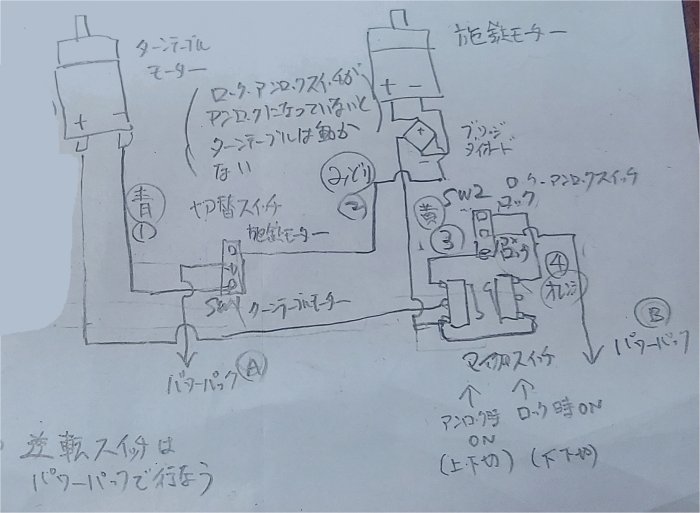 ターンテーブル
モーター
施錠モーター
+ -
+ -
ロック、アンロックスイッチが
アンロックになっていないと
ターンテーブルは動か
ない
ブリッジ
ダイオード
+
-
青
①
みどり
②
切替スイッチ
施錠モーター
SW1
ターンテーブルモーター
SW2
ロック・アンロックスイッチ
ロック
アンロック
黄
③
④
オレンジ
パワーパック Ⓐ
Ⓑ
パワーパック
マイクロスイッチ
アンロック時
ON
(上下切)
ロック時ON
(下下切)
逆転スイッチは
パワーパックで行なう